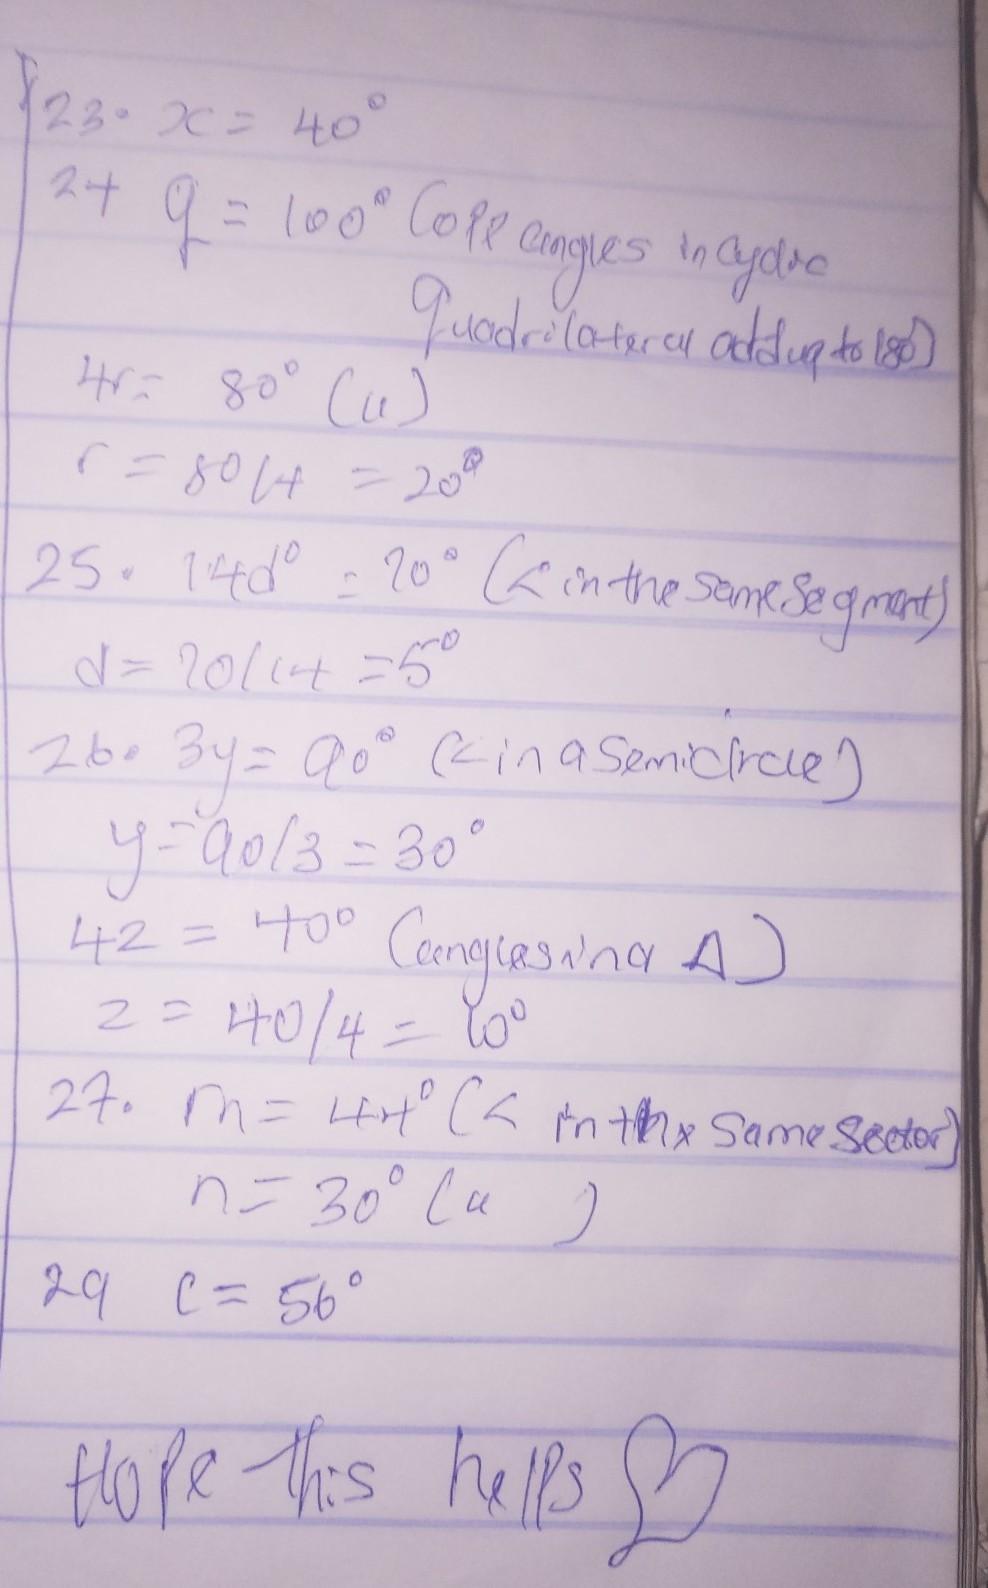 23. x = 40°
24 q = 100° (opp angles in cyclic
quadrilateral add up to 180)
4r = 80° (u)
r = 80/4 = 20°
25. 14d° = 70° (< in the same segment)
d = 70/14 = 5°
26. 3y = 90° (< in a semicircle)
y = 90/3 = 30°
4z = 40° (angles in a Δ)
z = 40/4 = 10°
27. m = 44° (< in the same sector)
n = 30° (u )
29 c = 56°
Hope this helps